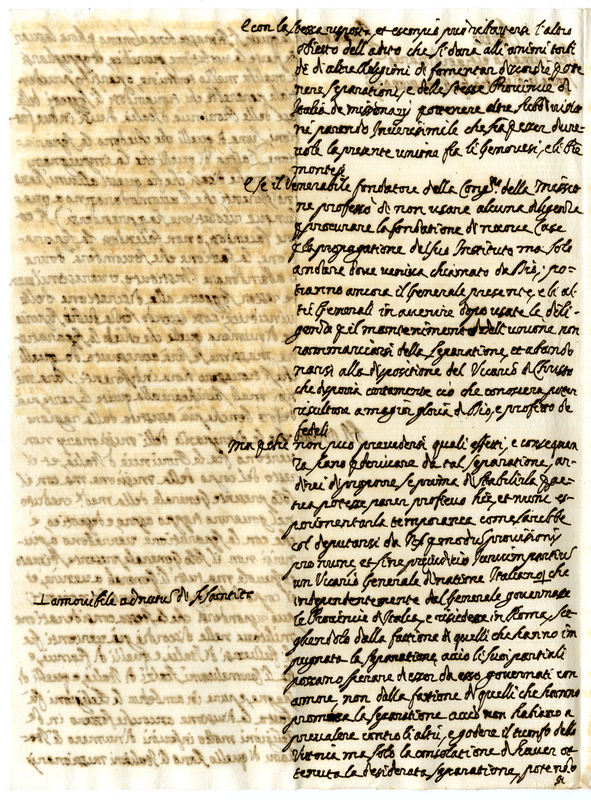 e con la stessa risposta, et esempio può ributtarsi l'altro
obietto dell'adito che si dona all'animi torbi
di di altre Religioni di fomentar discordie p otte
nere separationi, e delle stesse Provincie di
Italia de missionarj p ottenere altre subdivisio
ni parendo inverisimile che sia p esser dure-
vole la presente unione fra li Genovesi, e li Pie
montesi
e se il Venerabile fondatore della Cong.ne della Missio
ne professò di non usare alcuna diligenza
p procurare la fondatione di nuove Case
p la propagatione del suo Instituto ma solo
andare dove veniva chiamato da Dio; po-
tranno ancora il Generale presente, e li al
tri Generali in avenire dopo usate le dili-
genze p il mantenimento dell'unione non
rammaricarsi della separatione, et abando
narsi alla dispositione del Vicario di Christo
che disporrà certamente ciò che conoscerà poter
risultare a magior gloria di Dio, e profitto de
fedeli
Ma p che non può prevedersi quali effetti, e conseguen
ze siano p derivare da tal separatione, ar-
direi di proporre se prima di stabilirla p pe-
tua potesse parer proficuo hic et nunc es-
perimentarla temporanea come sarebbe
col deputarsi da N.S. p modum provisionis
pro nunc et sine preiuditio Jurium partium
un Vicario Generale di natione Italiano che
Lamovibile ad nutum di S. Santità
independentemente dal Generale governasse
le Provincie d'Italia, e risiedesse in Roma, sce
gliendolo dalla fattione di quelli che hanno im
pugnata la separatione acciò li suoi partiali
possano sperare di esser da esso governati con
amore, non dalla fatione di quelli che hanno
promossa la separatione acciò non habiano a
prevalere contro li altri, e godere il trionfo della
Vittoria ma solo la consolatione di haver ot
tenuta la desiderata separatione, potendo
si